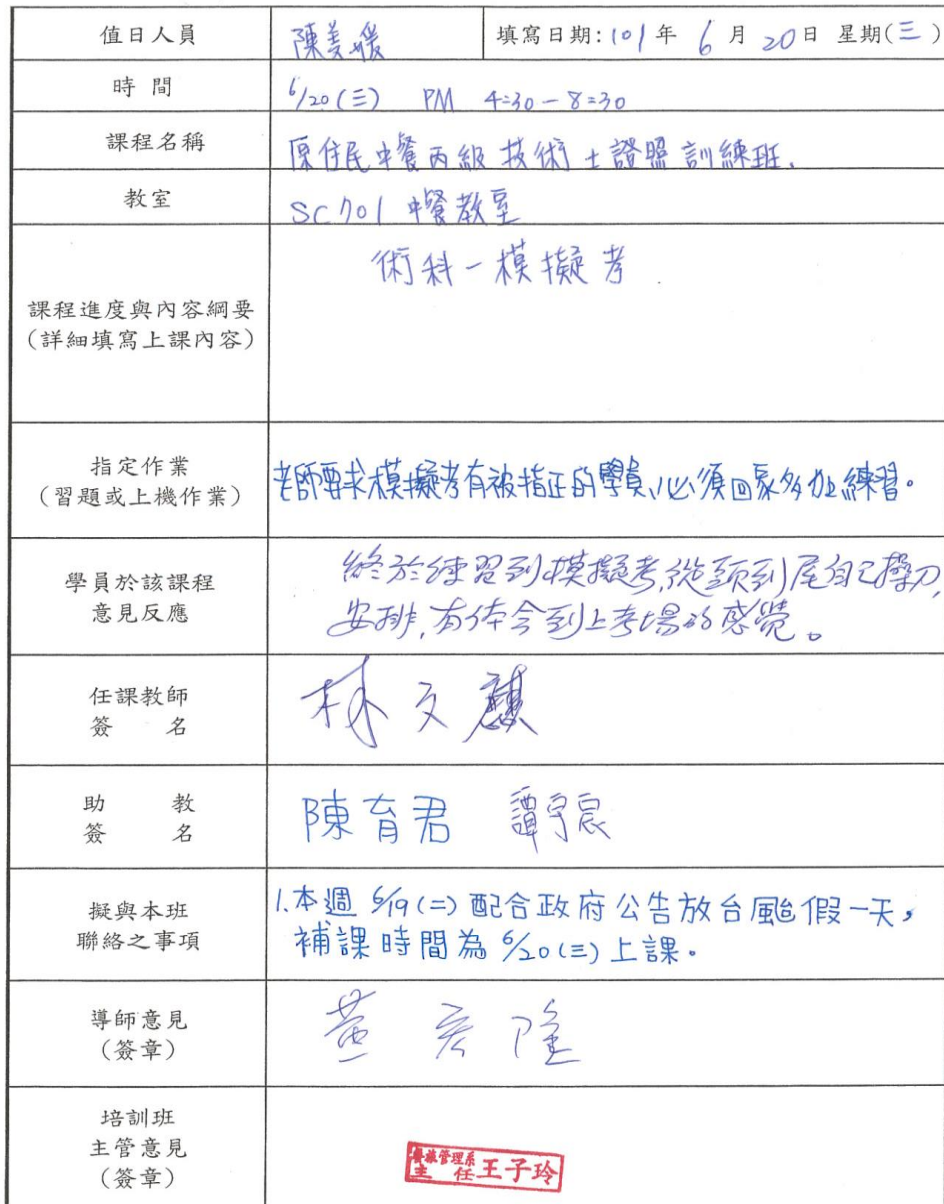 值日人員 陳美媛 填寫日期:101年 6月20日 星期(三)
時 間 6/20(三) PM 4:30-8:30
課程名稱 原住民中餐丙級技術士證照訓練班.
教室 SC701中餐教室
課程進度與內容綱要
(詳細填寫上課內容)
術科-模擬考
指定作業
(習題或上機作業)
老師要求模擬考有被指正的學員,必須回家多加練習。
學員於該課程
意見反應
終於練習到模擬考,從頭到尾自己操刀,
安排,有体会到上考場的感覺。
任課教師
簽 名
林文
助 教
簽 名
陳育君 譚宇宸
擬與本班
聯絡之事項
1.本週6/19(二)配合政府公告放台颱假一天,
補課時間為6/20(三)上課。
導師意見
(簽章)
黃宏隆
培訓班
主管意見
(簽章)
餐旅管理系
主任 王子玲